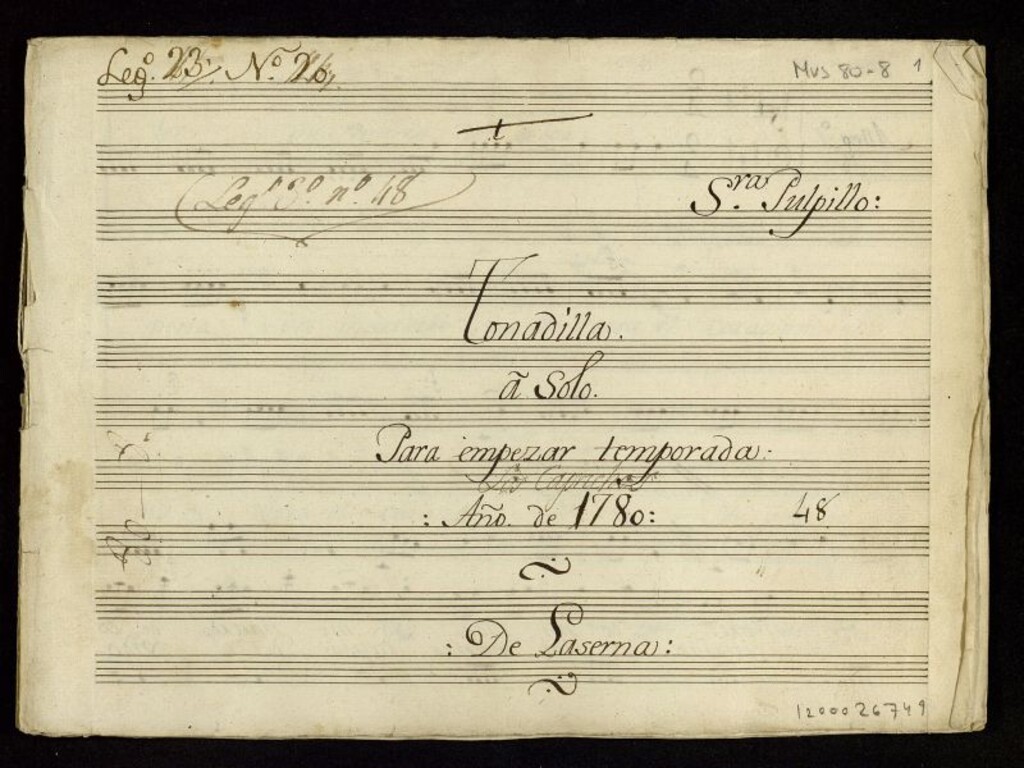 Leg.º 23. N.º 26,
Mus 80-8 1
Leg.º 3.º n.º 48
S.ra Pulpillo:
Tonadilla.
â Solo.
Para empezar temporada.
Los Caprichos
: Año. de 1780: 48
: De Laserna:
1200026749